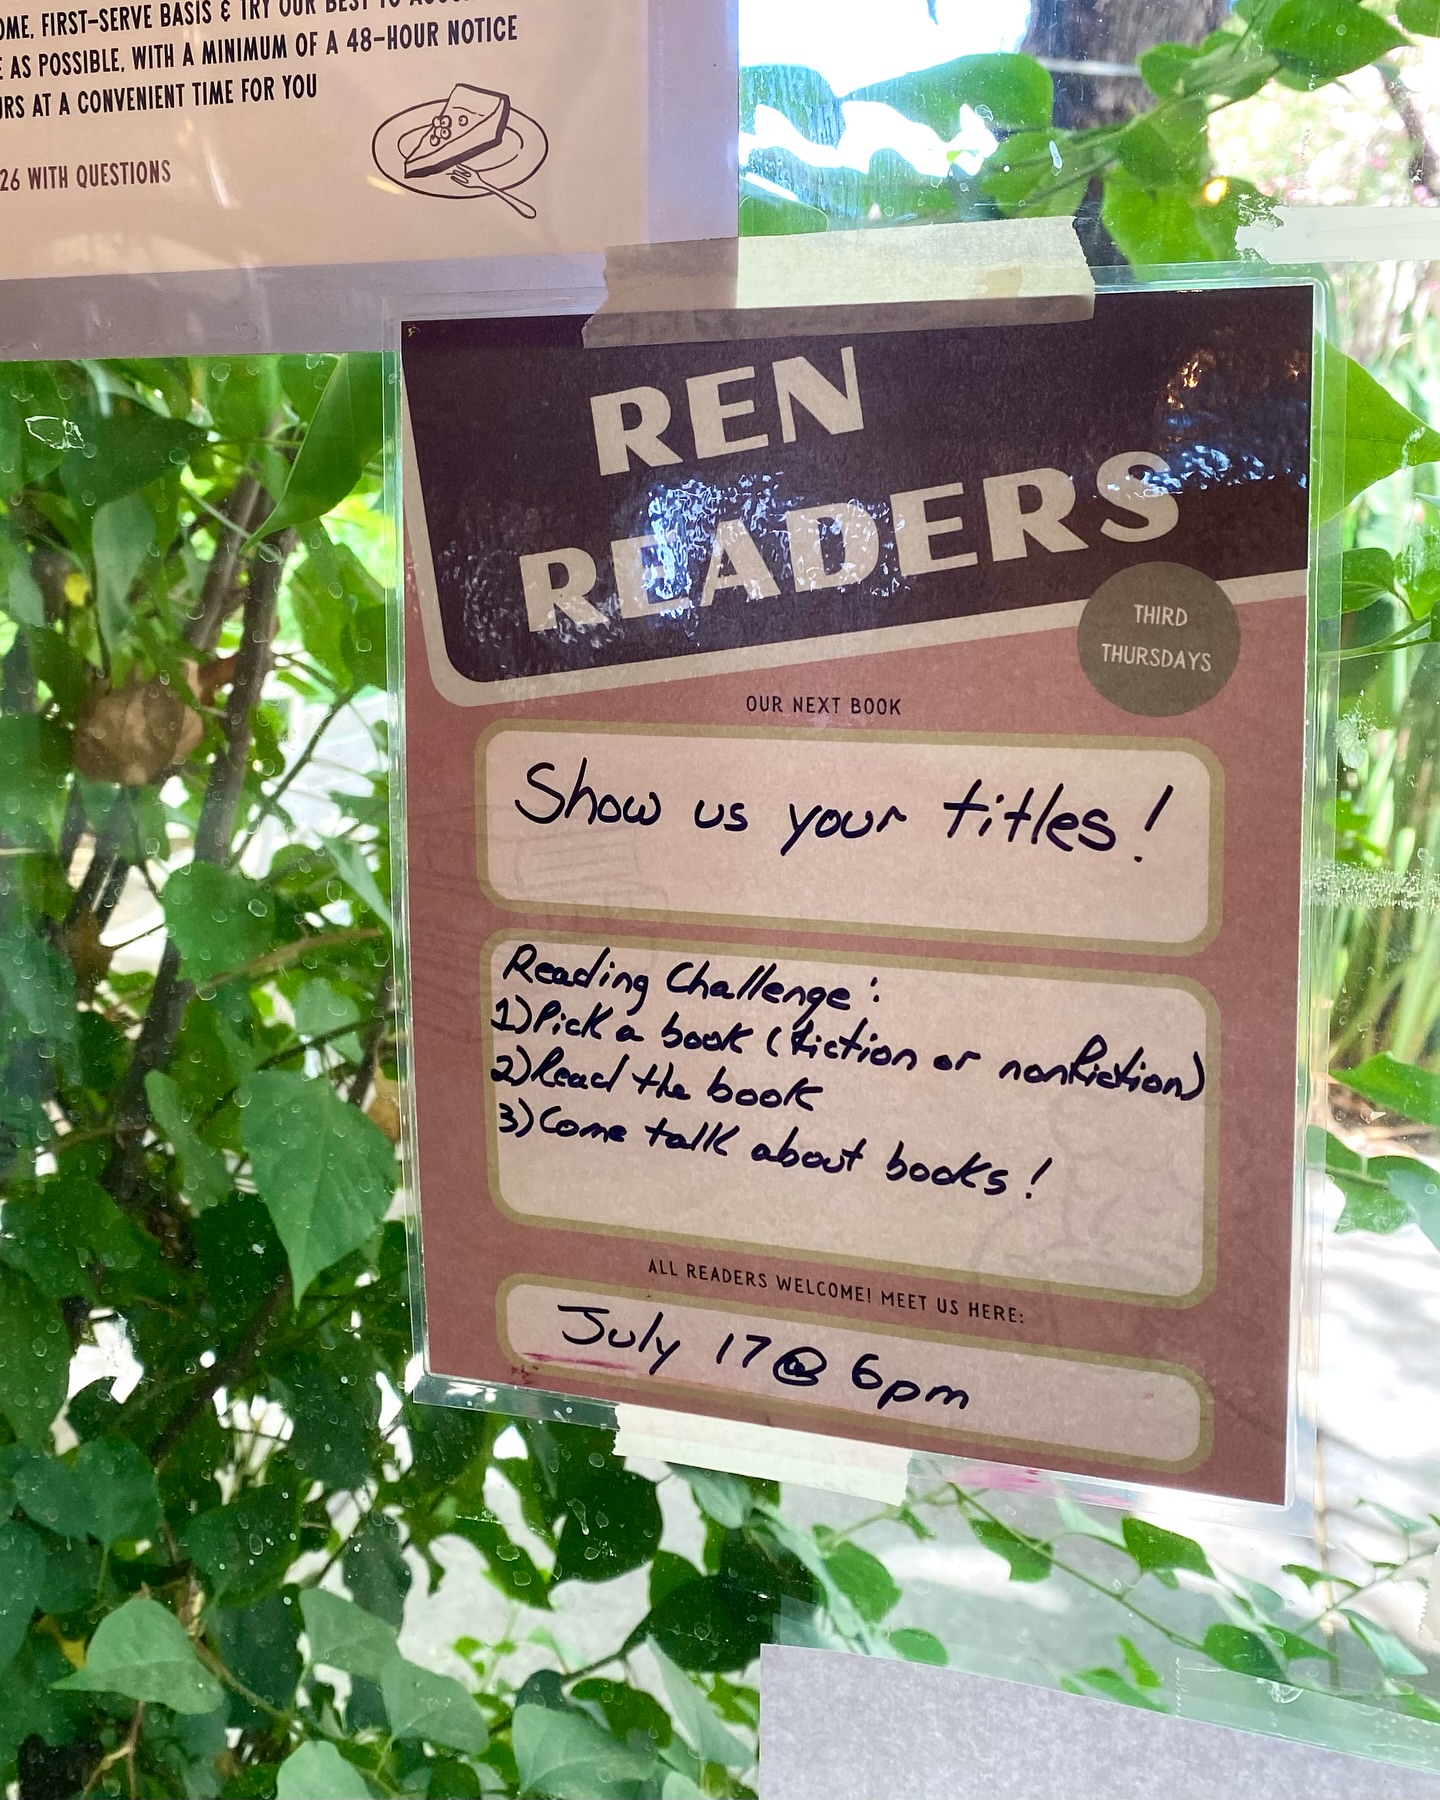 FIRST-SERVE BASIS & TRY OUR BEST TO
AS POSSIBLE, WITH A MINIMUM OF A 48-HOUR NOTICE
AT A CONVENIENT TIME FOR YOU
26 WITH QUESTIONS
REN
READERS
THIRD
THURSDAYS
OUR NEXT BOOK
Show us your titles!
Reading Challenge:
1) Pick a book (fiction or nonfiction)
2) Read the book
3) Come talk about books!
ALL READERS WELCOME! MEET US HERE:
July 17 @ 6pm